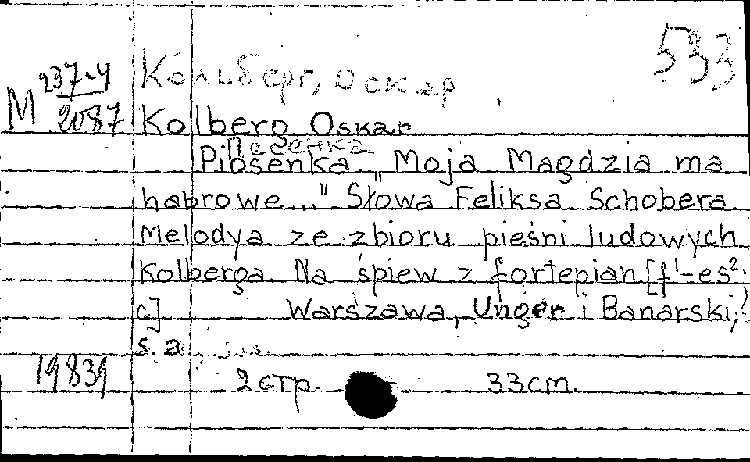 533
Кольберг, Оскар
М 237-4
2087
Kolberg Oskar
Песенка
Piosenka "Moja Magdzia ma
habrowe..." Słowa Feliksa Schobera
Melodya ze zbioru pieśni ludowych
Kolberga Na śpiew z fortepian [f¹-es²;
c] Warszawa, Unger i Banarski,
s. a.
19839
2 стр. 33cm.